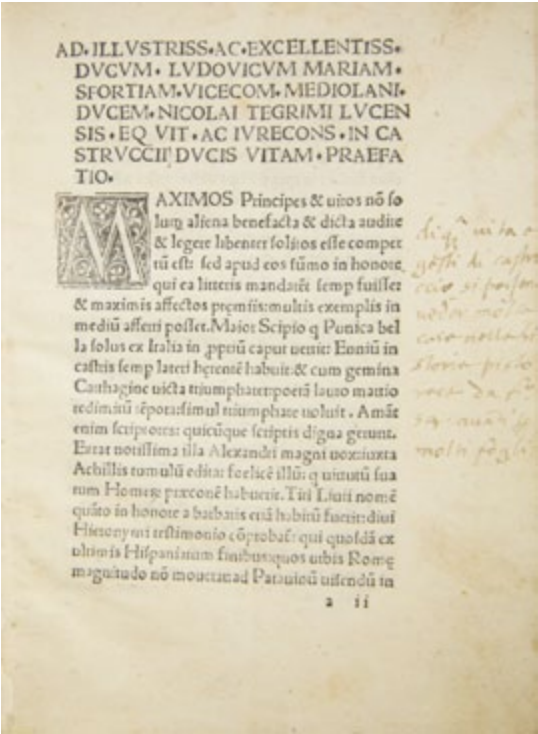 AD·ILLVSTRISS·AC·EXCELLENTISS·
DVCVM·LVDOVICVM MARIAM·
SFORTIAM·VICECOM·MEDIOLANI·
DVCEM·NICOLAI TEGRIMI LVCEN
SIS·EQVIT·AC IVRECONS·IN CA
STRVCCII DVCIS VITAM·PRAEFA
TIO·
MAXIMOS Principes & uiros nō so
lum aliena benefacta & dicta audire
& legere libenter solitos esse comper
tū est: sed apud eos sūmo in honore
qui ea litteris mandarēt semp fuisse:
& maximis affectos premiis: multis exemplis in
mediū afferri posset. Maior Scipio q Punica bel
la solus ex Italia in ꝓpriū caput uertit: Enniū in
castris semp lateri herentē habuit: & cum gemina
Carthagine uicta triumpharet: poetā lauro martio
redimitū tēporat simul triumphare uoluit. Amāt
enim scriptores: quicūque scriptis digna gerunt.
Extat notissima illa Alexandri magni uox: iuxta
Achillis tumulū edita: foelicē illū: q uirtutū sua
rum Homerū praeconē habuerit. Titi Liuii nomē
quāto in honore a barbaris etiā habitū fuerit: diui
Hieronymi testimonio cōprobat: qui quosdā ex
ultimis Hispaniarum finibus: quos urbis Romę
magnitudo nō mouerat: ad Patauinū uisendū in
a ii